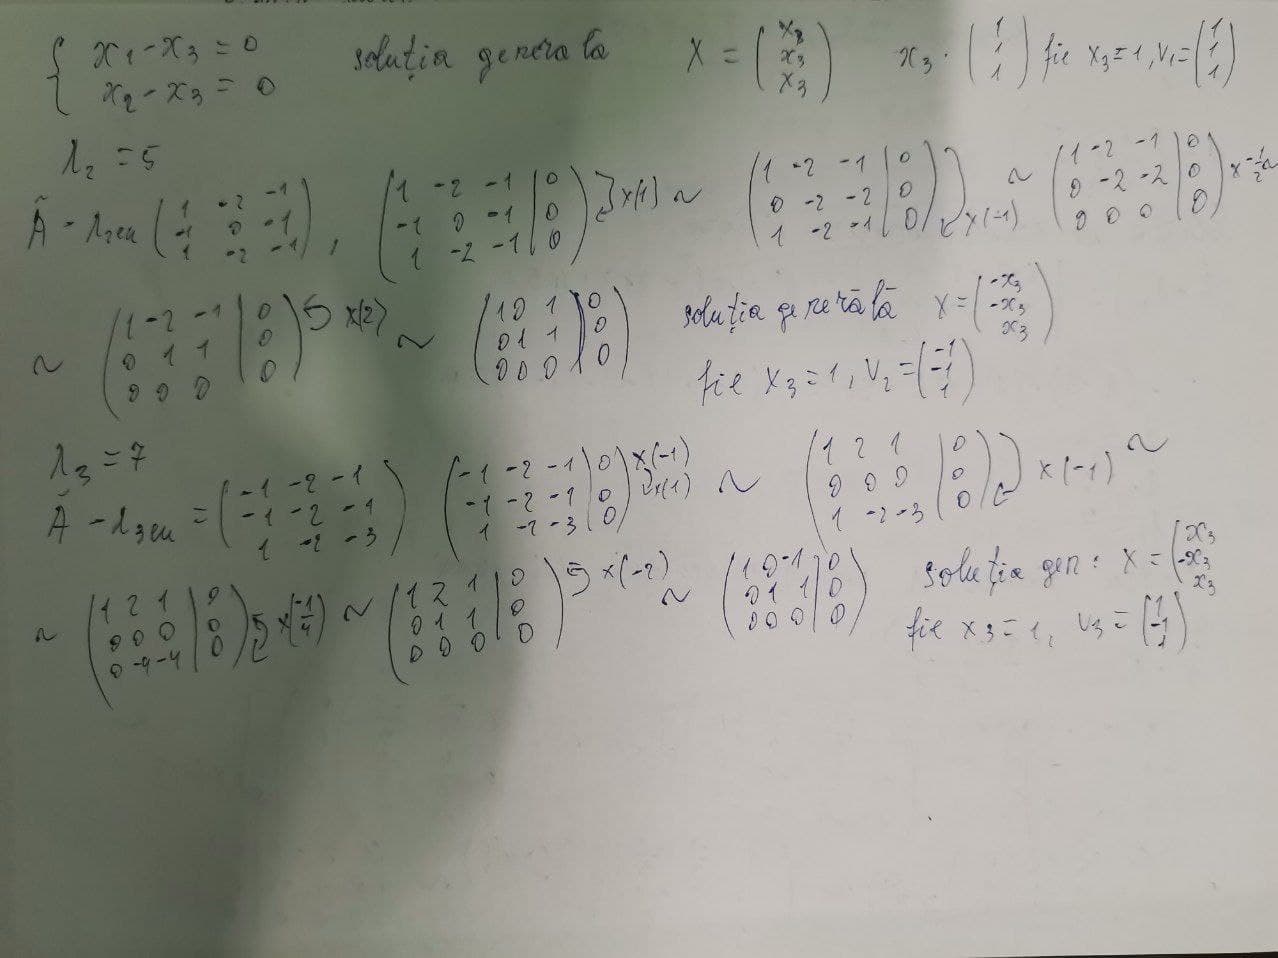 { x1 - x3 = 0
x2 - x3 = 0 soluția generală X = (x3 x3 x3) x3 · (1 1 1) fie x3 = 1, V1 = (1 1 1)
λ2 = 5
Ã - λ2En (1 -2 -1 / -1 0 -1 / 1 -2 -1), (1 -2 -1 | 0 / -1 0 -1 | 0 / 1 -2 -1 | 0) x(1) ~ (1 -2 -1 | 0 / 0 -2 -2 | 0 / 1 -2 -1 | 0) x(-1) ~ (1 -2 -1 | 0 / 0 -2 -2 | 0 / 0 0 0 | 0) x -1/2 ~
~ (1 -2 -1 | 0 / 0 1 1 | 0 / 0 0 0 | 0) x(2) ~ (1 0 1 | 0 / 0 1 1 | 0 / 0 0 0 | 0) soluția generală X = (-x3 -x3 x3)
fie x3 = 1, V2 = (-1 -1 1)
λ3 = 7
Ã - λ3En = (-1 -2 -1 / -1 -2 -1 / 1 -2 -3) (-1 -2 -1 | 0 / -1 -2 -1 | 0 / 1 -2 -3 | 0) x(-1) x(1) ~ (1 2 1 | 0 / 0 0 0 | 0 / 1 -2 -3 | 0) x(-1) ~
~ (1 2 1 | 0 / 0 0 0 | 0 / 0 -4 -4 | 0) x(-1/4) ~ (1 2 1 | 0 / 0 1 1 | 0 / 0 0 0 | 0) x(-2) ~ (1 0 -1 | 0 / 0 1 1 | 0 / 0 0 0 | 0) soluția gen: X = (x3 -x3 x3
fie x3 = 1, V3 = (1 -1 1)